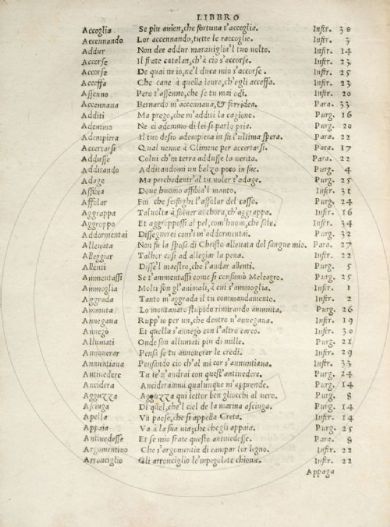 LIBRO
Accoglia Se piu auien, che fortuna t'accoglia. Infer. 30
Accennando Lor accennando, tutte le raccoglie. Infer. 3
Addur Non dee addur marauiglia'l tuo uolto. Infer. 14
Accorse Il frate catelan, ch'à ciò s'accorse. Infer. 23
Accorse De quai ne io, ne'l duca mio s'accorse. Infer. 25
Accosta Che cane à quella loura, ch'egli accosta. Infer. 23
Assenno Pero t'assenno, che se tu mai odi. Infer. 20
Accennaua Bernardo m'accennaua, & sorridea. Para. 33
Additi Ma prego, che m'additi la cagione. Purg. 16
Adentino Purg. 20
Adempiera Ei tuo disio adempiera in su l'ultima spera. Para. 22
Accertarsi Qual uenne à Climene per accertarsi. Para. 17
Addusse Colui ch'in terra addusse la uerita. Para. 22
Additando Additandomi un balzo poco in sue. Purg. 4
Adage Ma perche dentr'al tu uoler t'adage. Purg. 25
Affibia Doue l'huomo affibia'l manto. Infer. 31
Affollar Fin che si sfoghi l'affollar del casso. Purg. 24
Aggrappa Tal uolta à soluer anchora, ch'aggrappa. Infer. 16
Aggroppa Et aggroppossi al pel, com'huom, che sale. Infer. 34
Addormentai Dissegnerei com'i m'addormentai. Purg. 32
Alleuata Non fu la sposa di Christo alleuata del sangue mio. Para. 27
Alleggiar Talhor cosi ad alleggiar la pena. Infer. 22
Allenti Diss'el maestro, che l'andar allenti. Purg. 25
Ammentassi Se t'ammentassi come si consumò Meleagro. Purg. 25
Ammoglia Molti son gl'animali, à cui s'ammoglia. Infer. 1
Aggrada Tanto m'aggrada il tu commandamento. Infer. 2
Ammuta Lo montanaro stupido rimirando ammuta. Purg. 26
Annegaua Rupp'io per un, che dentro u'annegaua. Infer. 19
Annegò Et quella s'annegò con l'altro carco. Infer. 30
Alluuiati Infer. 21
Annouerar Pensi se tu annouerar le credi. Infer. 29
Annuntiaua Pensando ciò ch'al mi cor s'annuntiaua. Infer. 33
Antiuedere Ta te n'andrai con quest'antiuedere. Purg. 14
Anciderà Anciderammi qualunque m'apprende. Purg. 14
Agguzza Agguzza qui lettor ben gliocchi al uero. Purg. 8
Asciuga Di quel, che'l ciel de la marina asciuga. Purg. 14
Apella Va paese, che si appella Creta. Infer. 14
Appaia Va à la sua uita; che chegli appaia. Purg. 25
Antiuedesse Et se mio frate questo antiuedesse. Para. 8
Argomentino Che s'argomentin di campar lor ligno. Infer. 22
Arronciglio Gli arronciglio le'mpegolate chiome. Infer. 22
Appaga